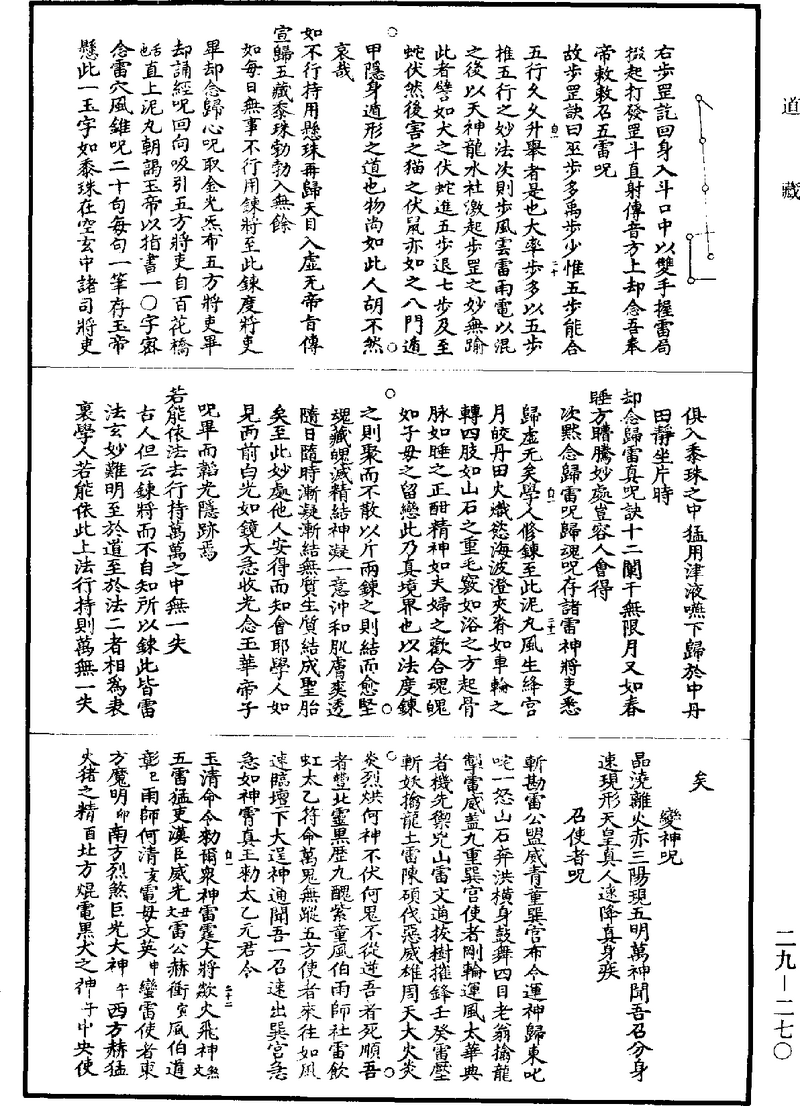 道藏
右步罡訖回身入斗口中以雙手握雷局
掇起打發罡斗直射傳音方上却念吾奉
帝敕敕召五雷呪
故步罡訣曰巫步多禹步少惟五步能合
五行久久升舉者是也大率步多以五步
惟五行之妙法次則步風雲雷雨電以混
之後以天神龍水社激起步罡之妙無踰
此者譬如犬之伏蛇進五步退七步及至
蛇伏然後害之猫之伏鼠亦如之八門遁
甲隱身遁形之道也物尚如此人胡不然
哀哉
如不行持用懸珠再歸天目入虛无帝旨傳
宣歸五藏黍珠勃勃入無餘
如每日無事不行用鍊將至此鍊度將吏
畢却念歸心呪取金光炁布五方將吏畢
却誦經呪回向吸引五方將吏自百花橋
直上泥丸朝謁玉帝以指書一〇字密
念雷穴風雉呪二十句每句一筆存玉帝
懸此一玉字如黍珠在空玄中諸司將吏
俱入黍珠之中猛用津液嚥下歸於中丹
田靜坐片時
却念歸雷真呪訣十二闌干無限月又如春
睡方瞢騰妙處豈容人會得
次黙念歸雷呪歸魂呪存諸雷神將吏悉
歸虛无矣學人修鍊至此泥丸風生絳宮
月皎丹田火熾慾海波澄夾脊如車輪之
轉四肢如山石之重毛竅如浴之方起骨
脉如睡之正酣精神如夫婦之歡合魂魄
如子母之留戀此乃真境界也以法度鍊
之則聚而不散以斤兩鍊之則結而愈堅
魂藏魄滅精結神凝一意沖和肌膚爽透
隨日隨時漸凝漸結無質生質結成聖胎
矣至此妙處他人安得而知會耶學人如
見面前白光如鏡大急收光念玉華帝子
呪畢而韜光隱跡焉
若能依法去行持萬萬之中無一失
古人但云鍊將而不自知所以鍊此皆雷
法玄妙難明至於道至於法二者相為表
裏學人若能依此上法行持則萬無一失
矣
變神呪
晶澆離火赤三陽現五明萬神聞吾召分身
速現形天皇真人速降真身疾
召使者呪
斬勘雷公盟威青童巽宮布令運神歸東叱
啶一怒山石奔洪橫身鼓舞四目老翁擒龍
掣電威蓋九重巽宮使者剛輪運風太華典
者機先禦兇山雷文適拔樹摧鋒壬癸雷壓
斬妖擒龍土雷陳碩伐惡威雄周天大火炎
炎烈烘何神不伏何鬼不從逆吾者死順吾
者豐北靈黒歷九醜紫童風伯雨師社雷飲
虹太乙符命萬鬼無蹤五方使者來往如風
速臨壇下大逞神通聞吾一召速出巽宮急
急如神霄真王勑太乙元君令
玉清命令勑爾衆神雷霆大將歘火飛神煞文
五雷猛吏漢臣威光雷公赫衝寅風伯道
彰巳雨師何清亥電母文英申蠻雷使者東
方魔明卯南方烈煞巨光大神午西方赫猛
火猪之精酉北方焜電黒犬之神子中央使
二九—二七〇